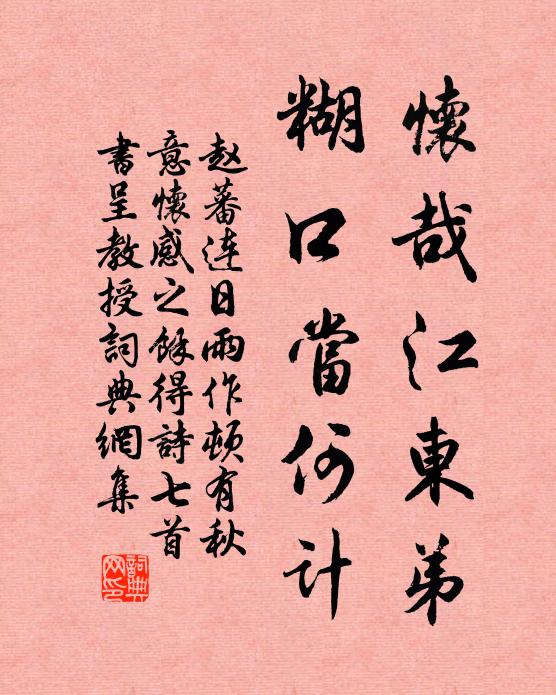 懷哉江東弟
糊口當何计
赵蕃连日雨作顿有秋
意懷感之餘得詩七首
書呈教授詞典網集
詞典网印